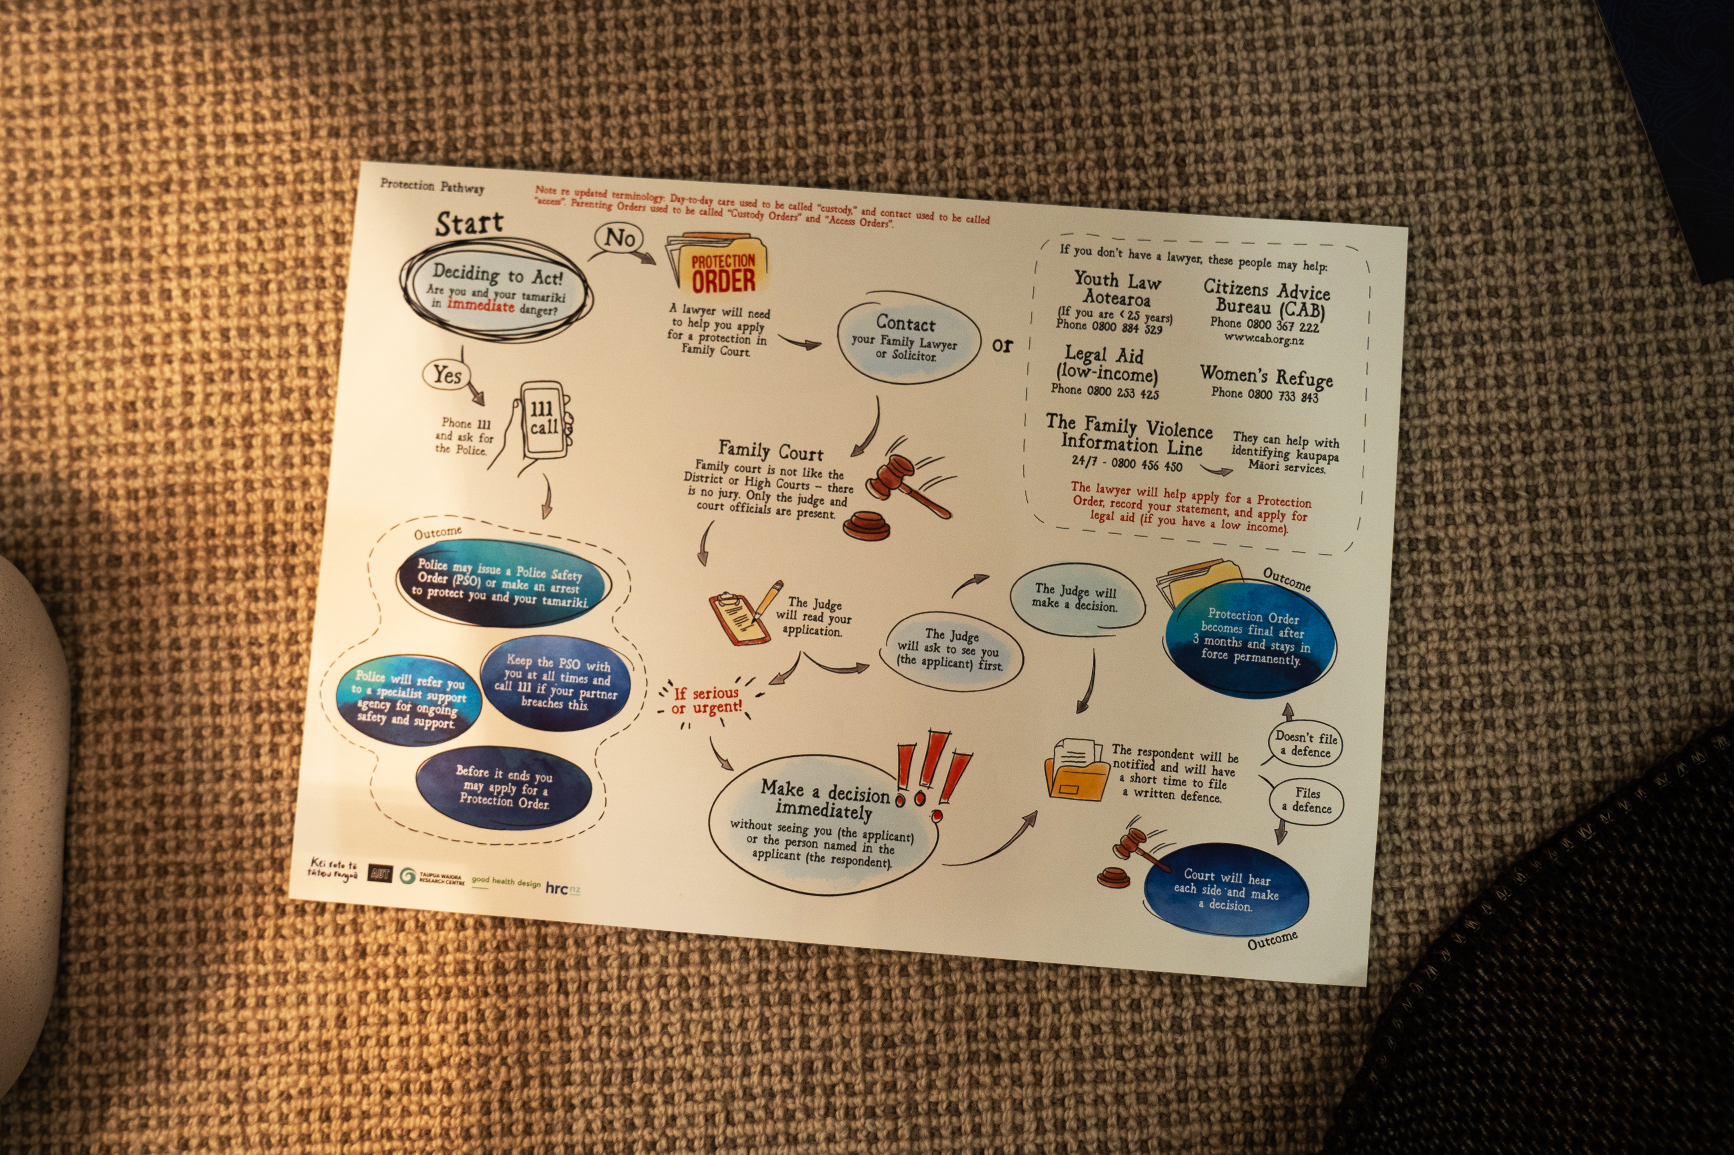 Protection Pathway
Note re updated terminology: Day-to-day care used to be called "custody," and contact used to be called
"access". Parenting Orders used to be called "Custody Orders" and "Access Orders".
Start
Deciding to Act!
Are you and your tamariki
in immediate danger?
No
PROTECTION
ORDER
A lawyer will need
to help you apply
for a protection in
Family Court.
Contact
your Family Lawyer
or Solicitor.
or
If you don't have a lawyer, these people may help:
Youth Law
Aotearoa
(If you are < 25 years)
Phone 0800 884 529
Citizens Advice
Bureau (CAB)
Phone 0800 367 222
www.cab.org.nz
Legal Aid
(low-income)
Phone 0800 253 425
Women's Refuge
Phone 0800 733 843
The Family Violence
Information Line
24/7 - 0800 456 450
They can help with
identifying kaupapa
Māori services.
The lawyer will help apply for a Protection
Order, record your statement, and apply for
legal aid (if you have a low income).
Yes
Phone 111
and ask for
the Police.
111
call
Outcome
Police may issue a Police Safety
Order (PSO) or make an arrest
to protect you and your tamariki.
Police will refer you
to a specialist support
agency for ongoing
safety and support.
Keep the PSO with
you at all times and
call 111 if your partner
breaches this.
Before it ends you
may apply for a
Protection Order.
Family Court
Family court is not like the
District or High Courts – there
is no jury. Only the judge and
court officials are present.
The Judge
will read your
application.
If serious
or urgent!
Make a decision
immediately
without seeing you (the applicant)
or the person named in the
applicant (the respondent).
The Judge
will ask to see you
(the applicant) first.
The Judge will
make a decision.
The respondent will be
notified and will have
a short time to file
a written defence.
Doesn't file
a defence
Files
a defence
Outcome
Protection Order
becomes final after
3 months and stays in
force permanently.
Court will hear
each side and make
a decision.
Outcome
Kei roto tō
tātou rangā
AUT
TAUPUA WAIORA
RESEARCH CENTRE
good health design
hrc nz